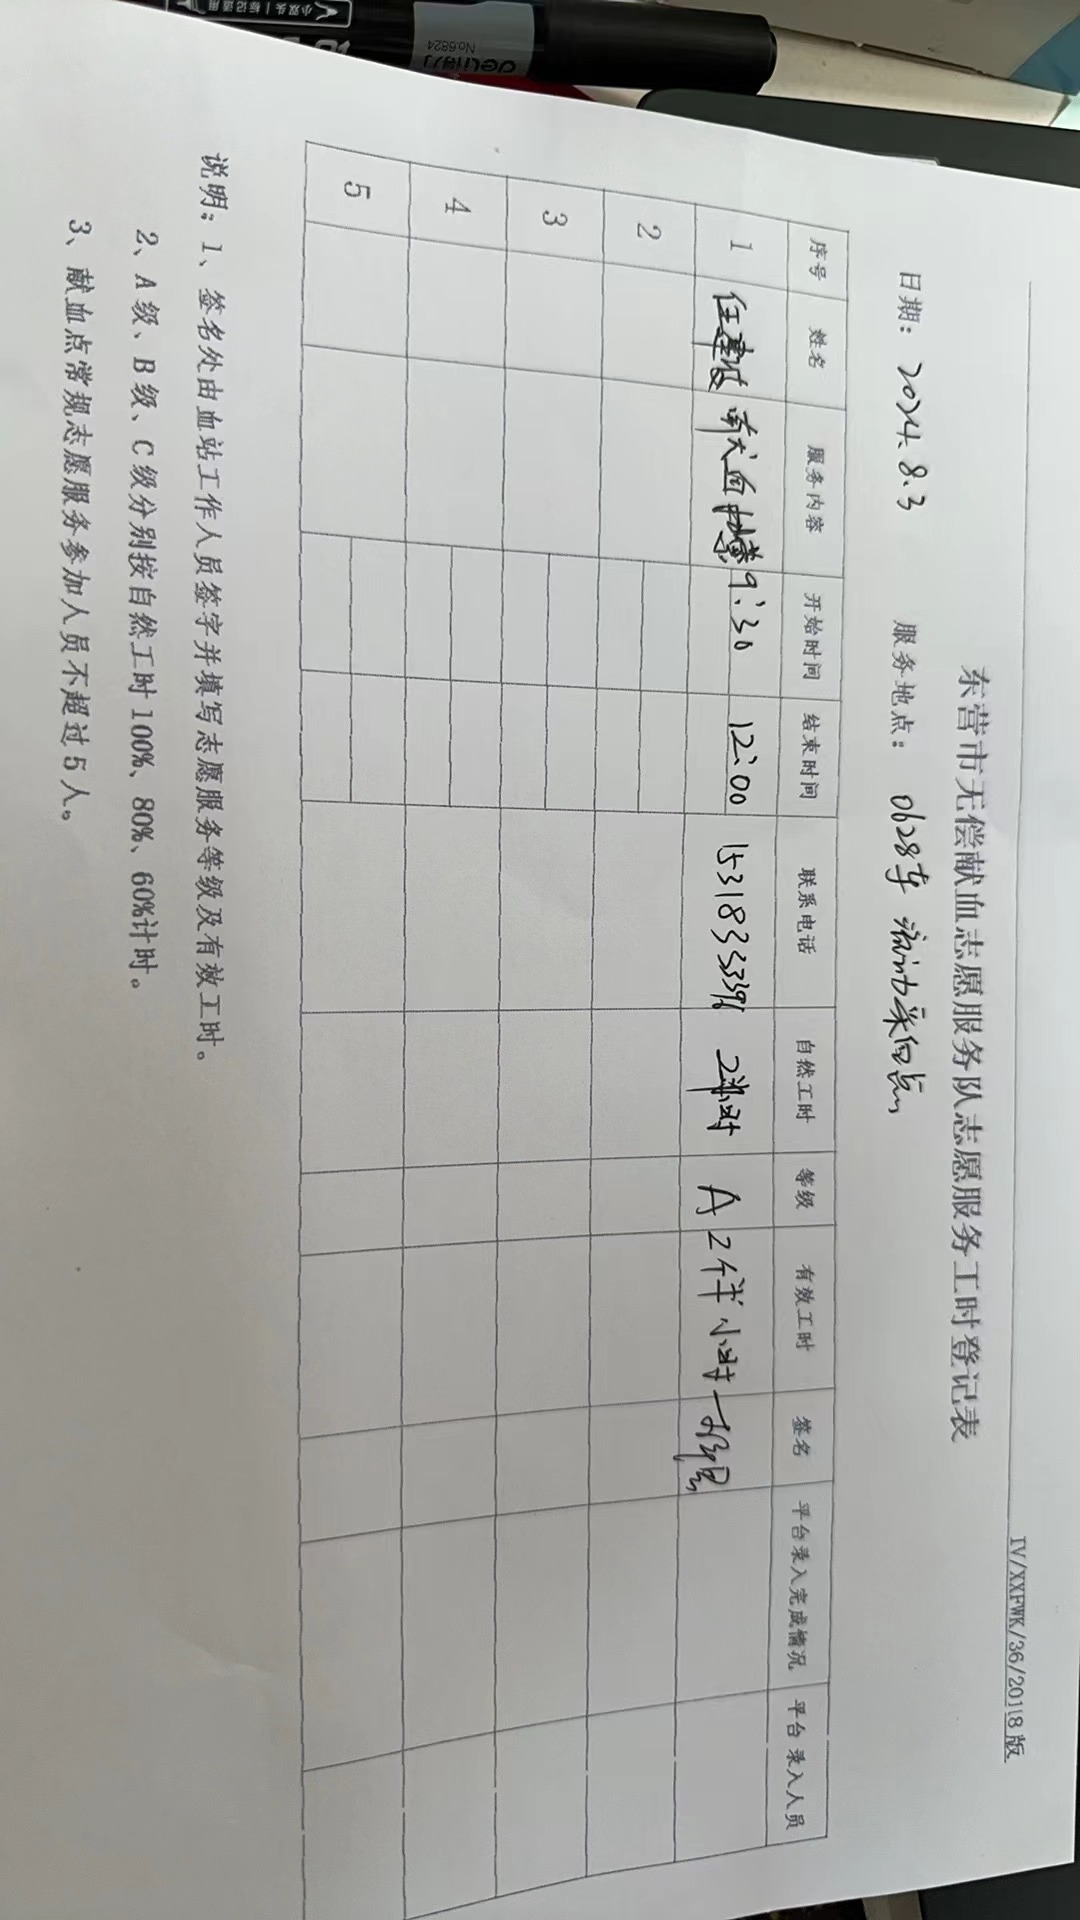 小双头 | 标记适用
deli得力
No.6824
IV/XXFWK/36/2018版
东营市无偿献血志愿服务队志愿服务工时登记表
日期: 2024.8.3 服务地点: 0628车 流动采血点
序号 姓名 服务内容 开始时间 结束时间 联系电话 自然工时 等级 有效工时 签名 平台录入完成情况 平台录入人员
1 任建波 献血 9:30 12:00 15318353396 A 2个半小时
2
3
4
5
说明:1、签名处由血站工作人员签字并填写志愿服务等级及有效工时。
2、A级、B级、C级分别按自然工时100%、80%、60%计时。
3、献血点常规志愿服务参加人员不超过5人。